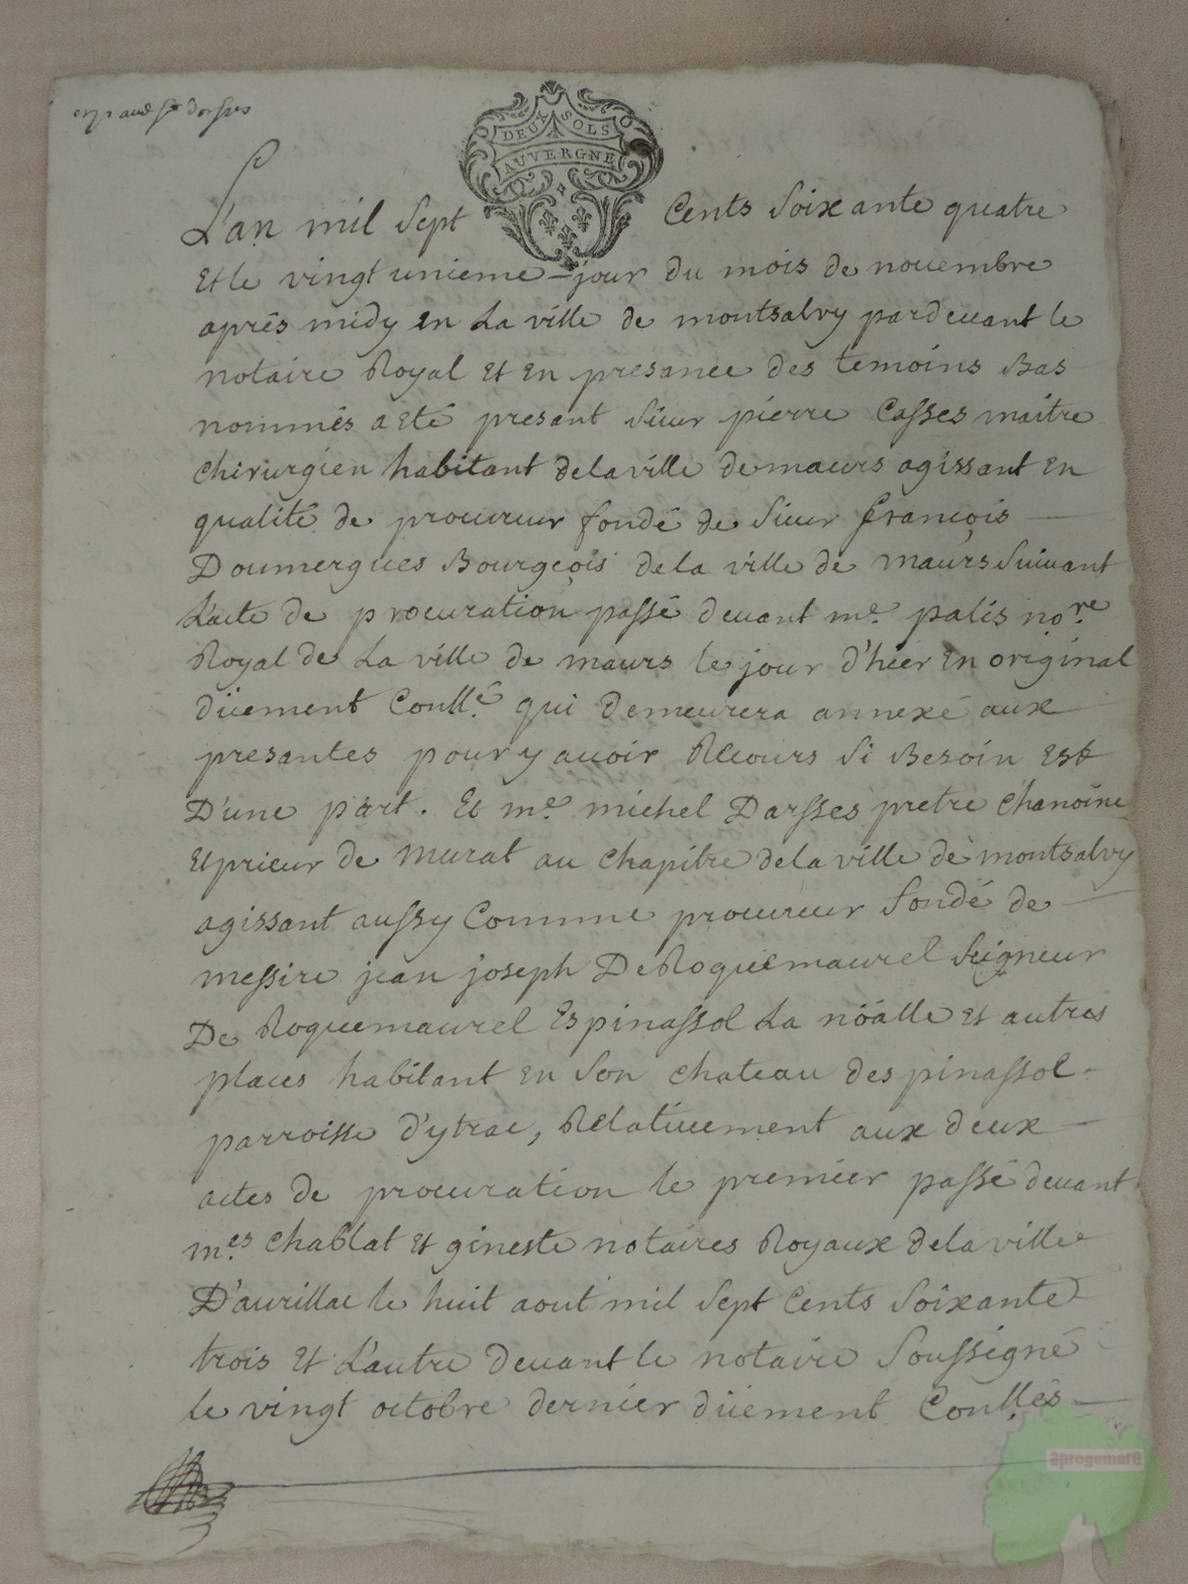 DEUX SOLS
AUVERGNE
L'an mil sept Cents soixante quatre
Et le vingt unieme jour du mois de nouembre
après midy En La ville de montsalvy pardeuant le
notaire Royal Et En presance des temoins Bas
nommés a Eté presant sieur pierre Casses maitre
chirurgien habitant de la ville de maurs agissant En
qualité de procureur fondé de sieur François
Doumergues Bourgeois de la ville de maurs suiuant
L'acte de procuration passé deuant me. palis nore.
Royal de La ville de maurs le jour d'hier En original
düement Conllé. qui demeurera annexé aux
presantes pour y auoir Recours si Besoin Est
D'une part. Et me. michel Darsses pretre Chanoine
Et prieur de murat au Chapitre de la ville de montsalvy
agissant aussy Comme procureur fondé de
messire jean joseph De Roquemaurel seigneur
De Roquemaurel Espinassol La nöalle Et autres
places habitant En son chateau despinassol
parroisse d'ytrac, Relatiuement aux deux
actes de procuration le premier passé deuant
mes. Chablat Et gineste notaires Royaux de la ville
D'aurillac le huit aout mil sept Cents soixante
trois Et L'autre deuant le notaire soussigné
le vingt octobre dernier düement Conllés
aprogemere